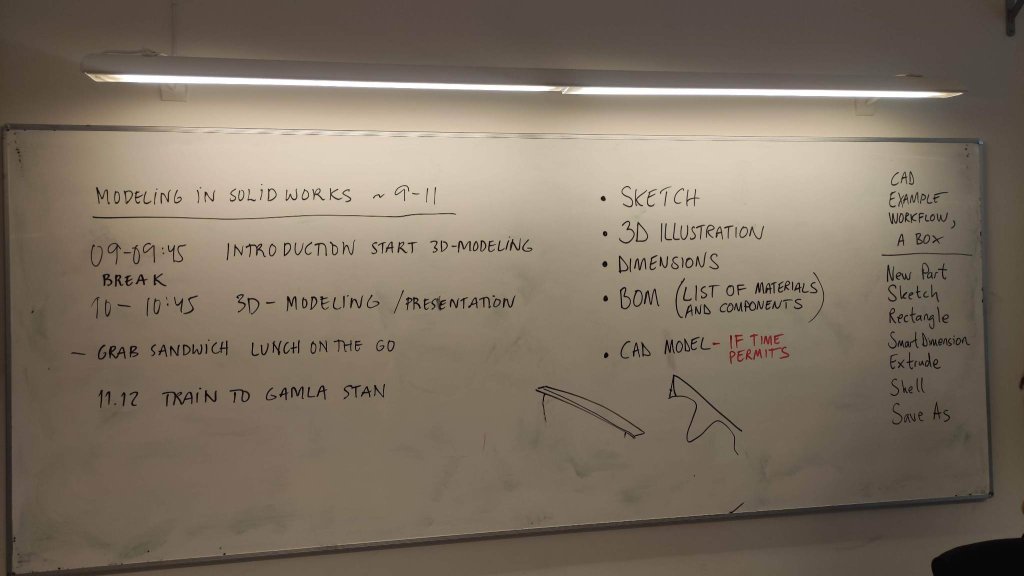 MODELING IN SOLIDWORKS ~ 9-11
09-09:45 INTRODUCTION START 3D-MODELING
BREAK
10-10:45 3D-MODELING / PRESENTATION
- GRAB SANDWICH LUNCH ON THE GO
11.12 TRAIN TO GAMLA STAN
• SKETCH
• 3D ILLUSTRATION
• DIMENSIONS
• BOM (LIST OF MATERIALS
AND COMPONENTS)
• CAD MODEL - IF TIME
PERMITS
CAD
EXAMPLE
WORKFLOW,
A BOX
New Part
Sketch
Rectangle
Smart Dimension
Extrude
Shell
Save As